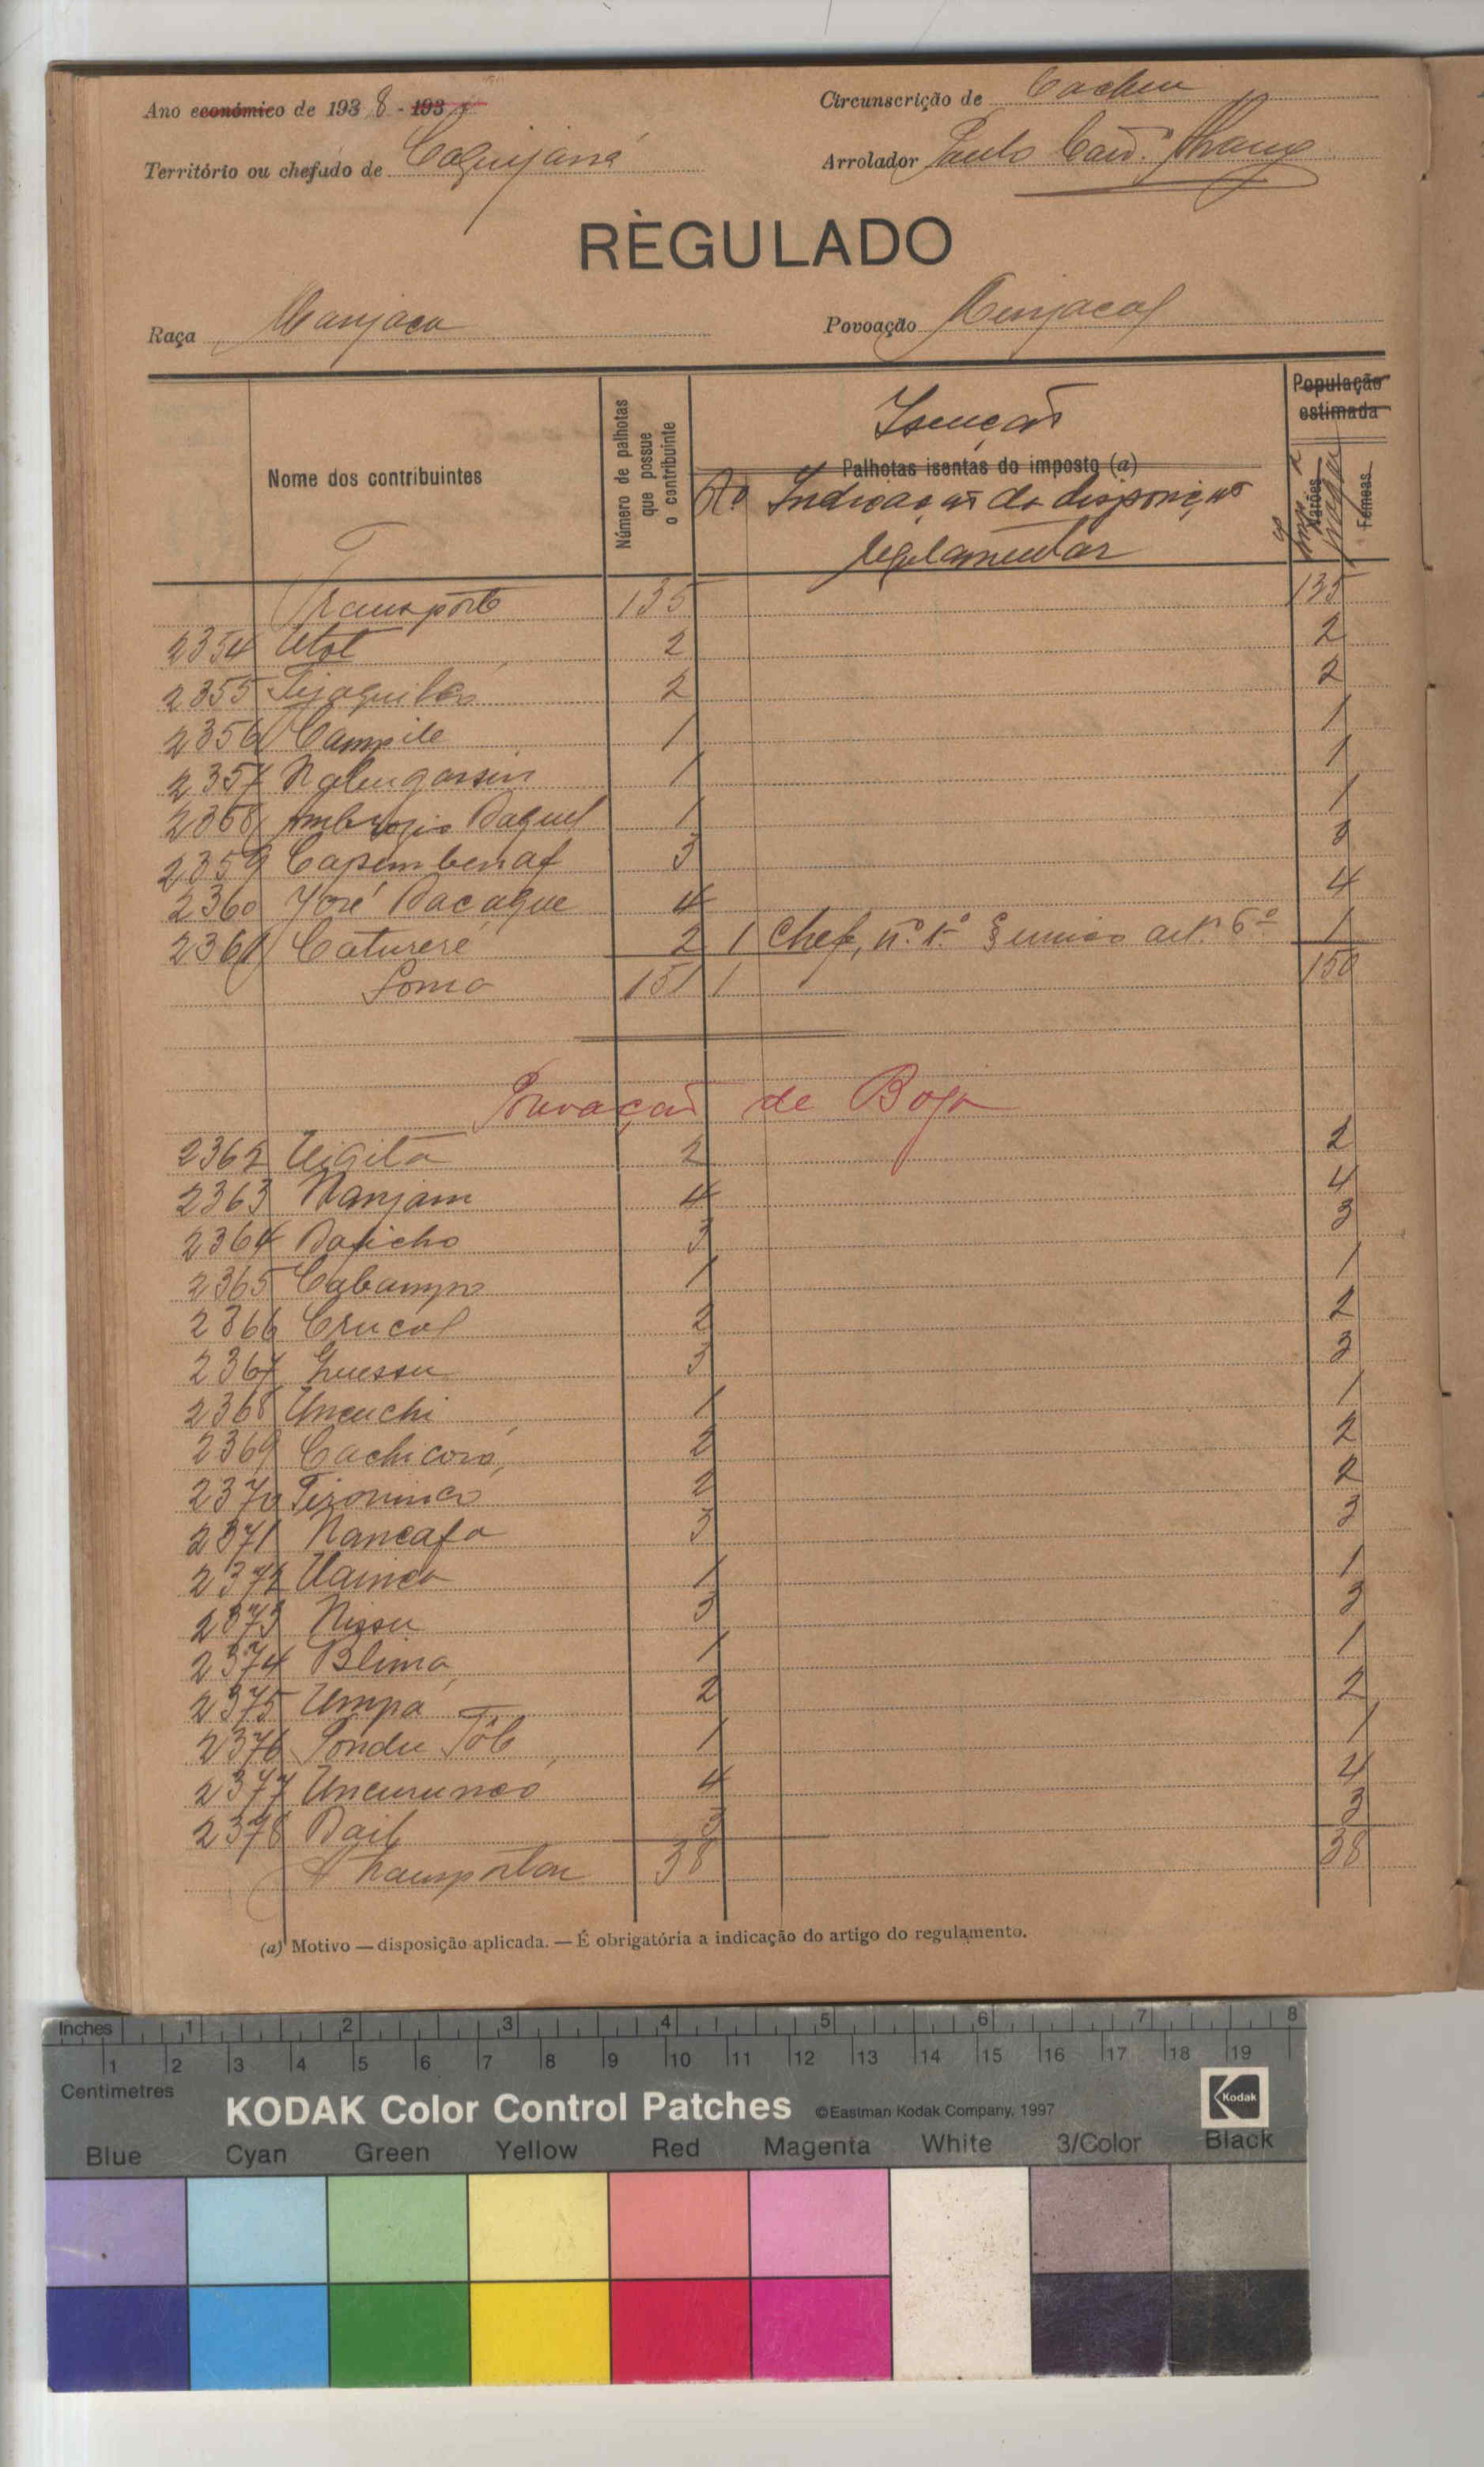 Ano económico de 1938 - 193
Circunscrição de Cacheu
Território ou chefado de Caquijana
Arrolador Paulo
RÈGULADO
Raça Manjaca
Povoação
Nome dos contribuintes
Número de palhotas que possue o contribuinte
Isenção
Palhotas isentas do imposto (a)
Nº Indicação da disposição
regulamentar
População estimada
Varões
Fêmeas
Transporte 135 135
2354 Utol 2 2
2355 2 2
2356 Campile 1 1
2357 1 1
2358 Ambrozio Daquel 1 1
2359 3 3
2360 José Dacaque 4 4
2361 Catureré 2 1 Chefe, nº 1º § unico artº 6º 1
Soma 151 1 150
Povoação de Boja
2362 Uigita 2 2
2363 Nanjam 4 4
2364 Daficho 3 3
2365 Cabampo 1 1
2366 Crucal 2 2
2367 3 3
2368 Uncuchi 1 1
2369 Cachicoró 2 2
2370 2 2
2371 Nancafa 3 3
2372 Uainca 1 1
2373 Nissu 3 3
2374 Blima 1 1
2375 Umpá 2 2
2376 Pondu Tôb 1 1
2377 4 4
2378 Dail 3 3
A transportar 38 38
(a) Motivo — disposição aplicada. — É obrigatória a indicação do artigo do regulamento.
Inches 1 2 3 4 5 6 7 8
1 2 3 4 5 6 7 8 9 10 11 12 13 14 15 16 17 18 19
Centimetres
KODAK Color Control Patches ©Eastman Kodak Company, 1997 Kodak
Blue Cyan Green Yellow Red Magenta White 3/Color Black